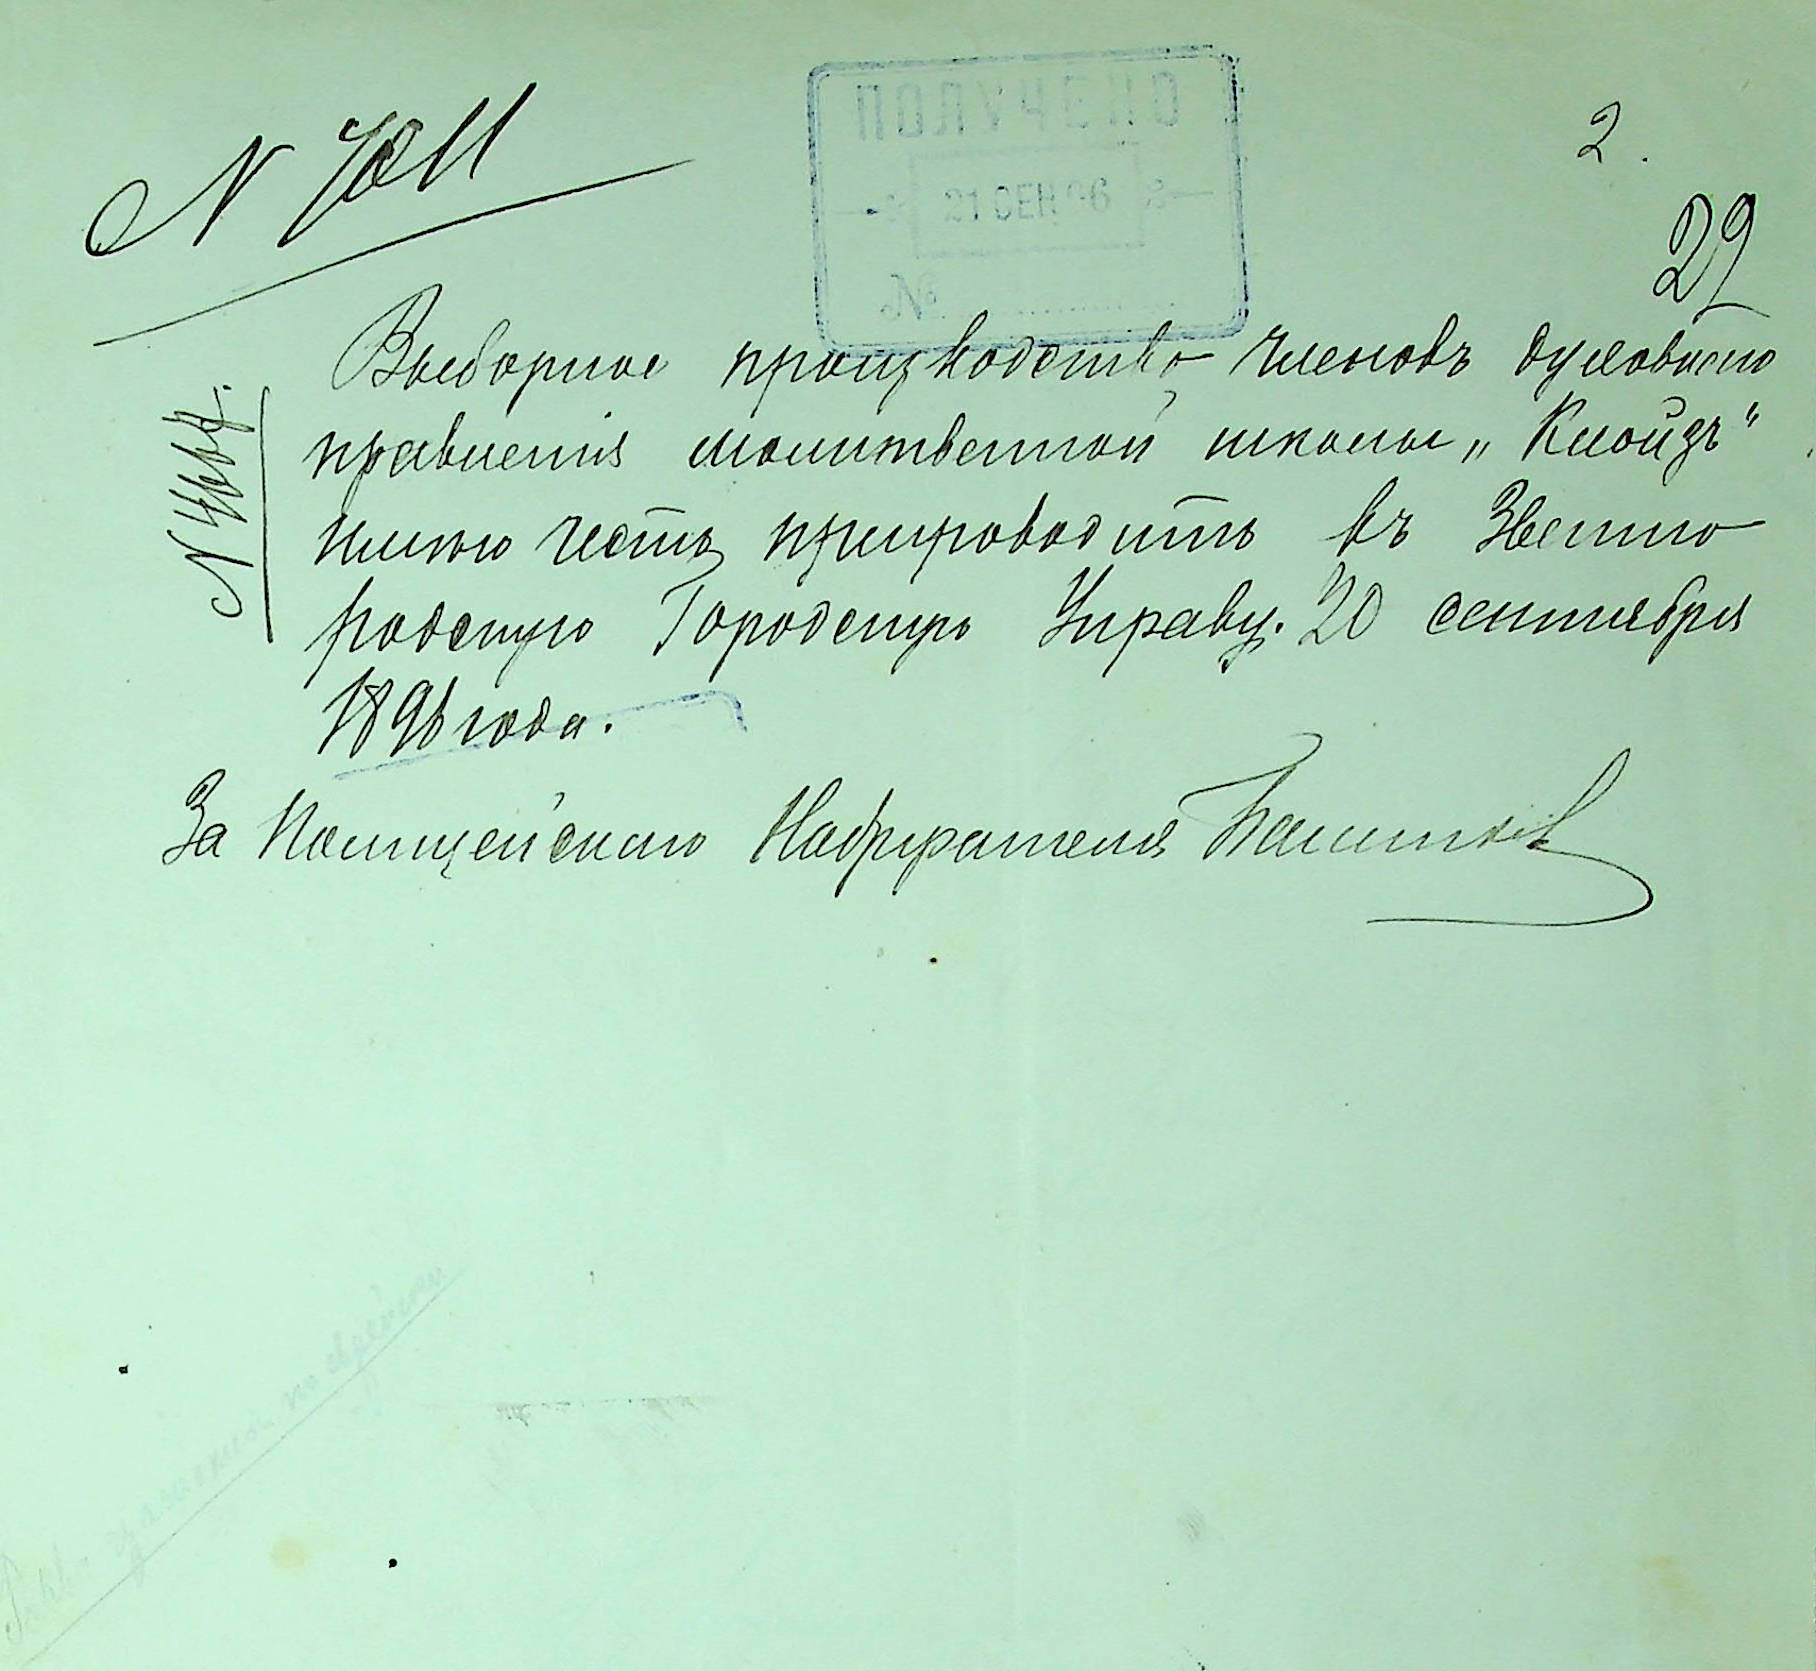 ПОЛУЧЕНО
21 СЕН 96
№
2.
29
Выборное производство членовъ духовнаго
правленія молитвенной школы „Клойзъ"
имѣю честь препроводить въ Звениго
родскую Городскую Управу. 20 сентября
1896 года.
За Полицейскаго Надзирателя